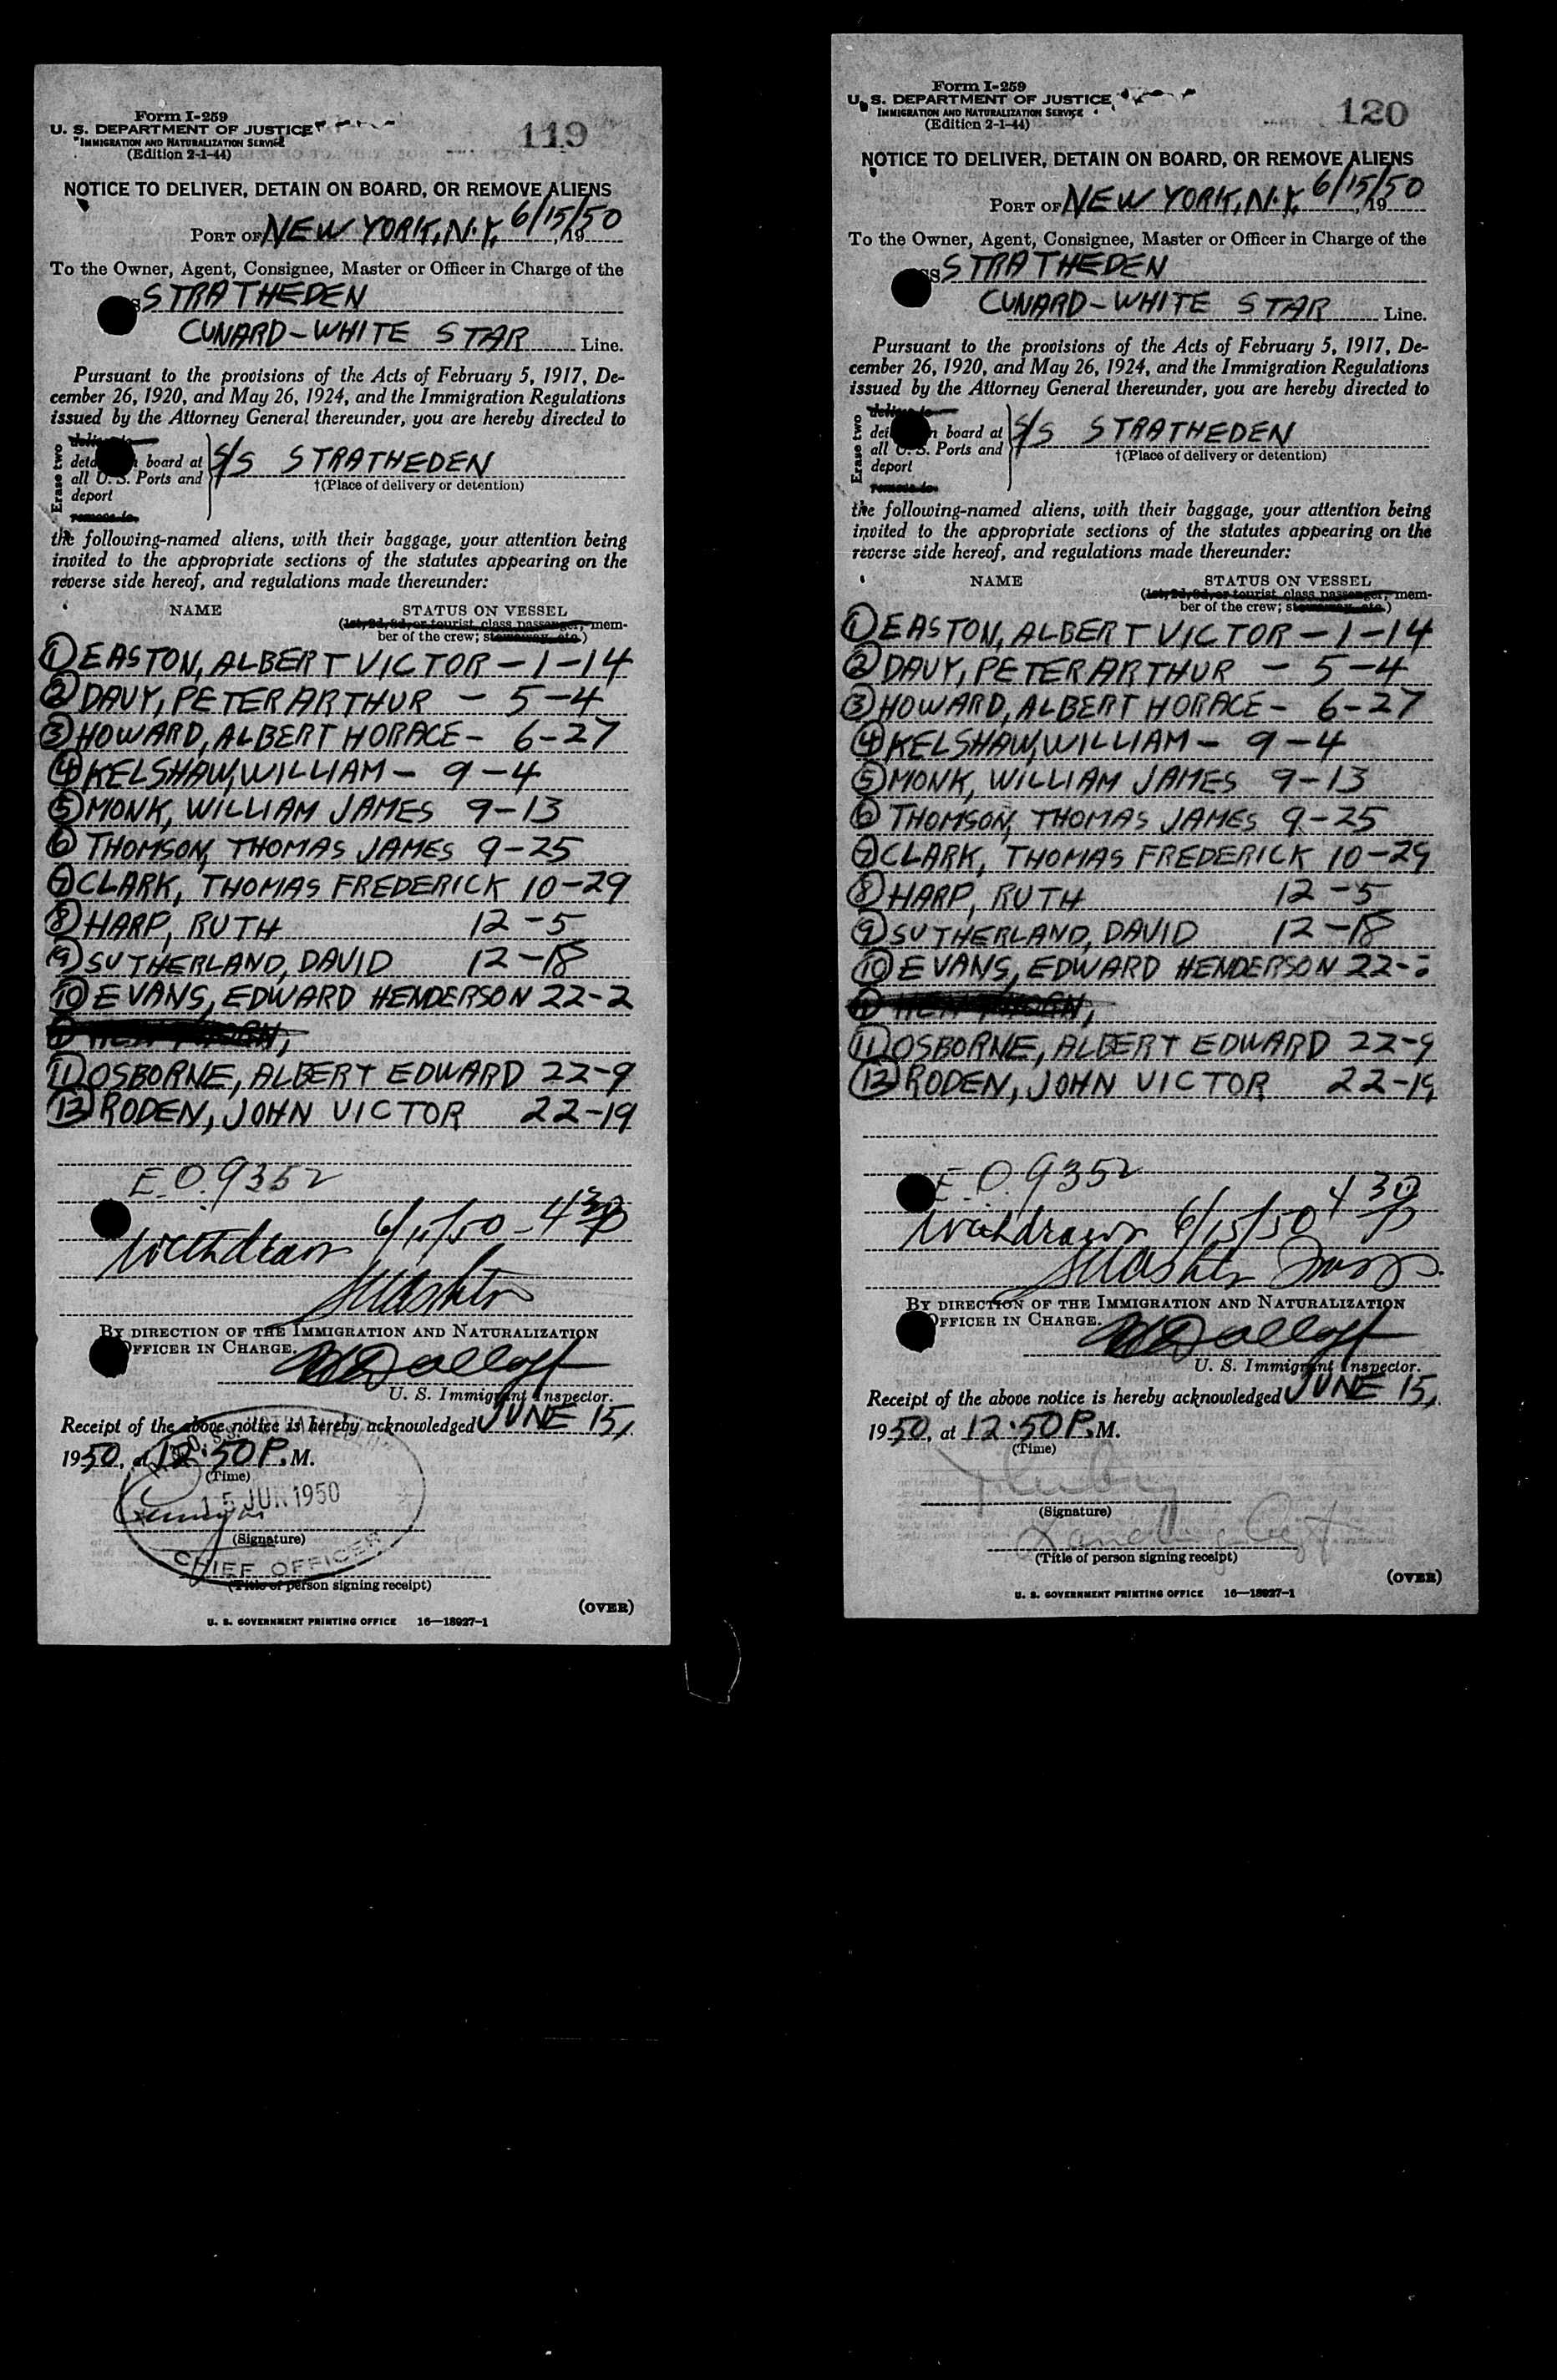 Form I-259
U. S. DEPARTMENT OF JUSTICE
IMMIGRATION AND NATURALIZATION SERVICE
(Edition 2-1-44)
119
NOTICE TO DELIVER, DETAIN ON BOARD, OR REMOVE ALIENS
PORT OF NEW YORK, N.Y. 6/15/50, 19
To the Owner, Agent, Consignee, Master or Officer in Charge of the
STRATHEDEN
CUNARD-WHITE STAR Line.
Pursuant to the provisions of the Acts of February 5, 1917, De-
cember 26, 1920, and May 26, 1924, and the Immigration Regulations
issued by the Attorney General thereunder, you are hereby directed to
Erase two
board at
all U. S. Ports and
deport
remove to
S/S STRATHEDEN
†(Place of delivery or detention)
the following-named aliens, with their baggage, your attention being
invited to the appropriate sections of the statutes appearing on the
reverse side hereof, and regulations made thereunder:
NAME STATUS ON VESSEL
(1st, 2d, 3d, or tourist class passenger; mem-
ber of the crew; stowaway, etc.)
1 EASTON, ALBERT VICTOR - 1-14
2 DAVY, PETER ARTHUR - 5-4
3 HOWARD, ALBERT HORACE - 6-27
4 KELSHAW, WILLIAM - 9-4
5 MONK, WILLIAM JAMES 9-13
6 THOMSON, THOMAS JAMES 9-25
7 CLARK, THOMAS FREDERICK 10-29
8 HARP, RUTH 12-5
9 SUTHERLAND, DAVID 12-18
10 EVANS, EDWARD HENDERSON 22-2
11 OSBORNE, ALBERT EDWARD 22-9
12 RODEN, JOHN VICTOR 22-19
E.O. 9352
Withdrawn 6/15/50 - 4 30 P
BY DIRECTION OF THE IMMIGRATION AND NATURALIZATION
OFFICER IN CHARGE.
U. S. Immigrant Inspector.
Receipt of the above notice is hereby acknowledged JUNE 15,
1950, at 12:50 P.M.
(Time)
15 JUN 1950
(Signature)
CHIEF OFFICER
(Title of person signing receipt)
(OVER)
U. S. GOVERNMENT PRINTING OFFICE 16—18927-1
Form I-259
U. S. DEPARTMENT OF JUSTICE
IMMIGRATION AND NATURALIZATION SERVICE
(Edition 2-1-44)
120
NOTICE TO DELIVER, DETAIN ON BOARD, OR REMOVE ALIENS
PORT OF NEW YORK, N.Y. 6/15/50, 19
To the Owner, Agent, Consignee, Master or Officer in Charge of the
SS STRATHEDEN
CUNARD-WHITE STAR Line.
Pursuant to the provisions of the Acts of February 5, 1917, De-
cember 26, 1920, and May 26, 1924, and the Immigration Regulations
issued by the Attorney General thereunder, you are hereby directed to
Erase two
board at
all U. S. Ports and
deport
remove to
S/S STRATHEDEN
†(Place of delivery or detention)
the following-named aliens, with their baggage, your attention being
invited to the appropriate sections of the statutes appearing on the
reverse side hereof, and regulations made thereunder:
NAME STATUS ON VESSEL
(1st, 2d, 3d, or tourist class passenger; mem-
ber of the crew; stowaway, etc.)
1 EASTON, ALBERT VICTOR - 1-14
2 DAVY, PETER ARTHUR - 5-4
3 HOWARD, ALBERT HORACE - 6-27
4 KELSHAW, WILLIAM - 9-4
5 MONK, WILLIAM JAMES 9-13
6 THOMSON, THOMAS JAMES 9-25
7 CLARK, THOMAS FREDERICK 10-29
8 HARP, RUTH 12-5
9 SUTHERLAND, DAVID 12-18
10 EVANS, EDWARD HENDERSON 22-
11 OSBORNE, ALBERT EDWARD 22-9
12 RODEN, JOHN VICTOR 22-19
E.O. 9352
Withdrawn 6/15/50 4 30 P
BY DIRECTION OF THE IMMIGRATION AND NATURALIZATION
OFFICER IN CHARGE.
U. S. Immigrant Inspector.
Receipt of the above notice is hereby acknowledged JUNE 15,
1950, at 12:50 P.M.
(Time)
(Signature)
(Title of person signing receipt)
(OVER)
U. S. GOVERNMENT PRINTING OFFICE 16—18927-1